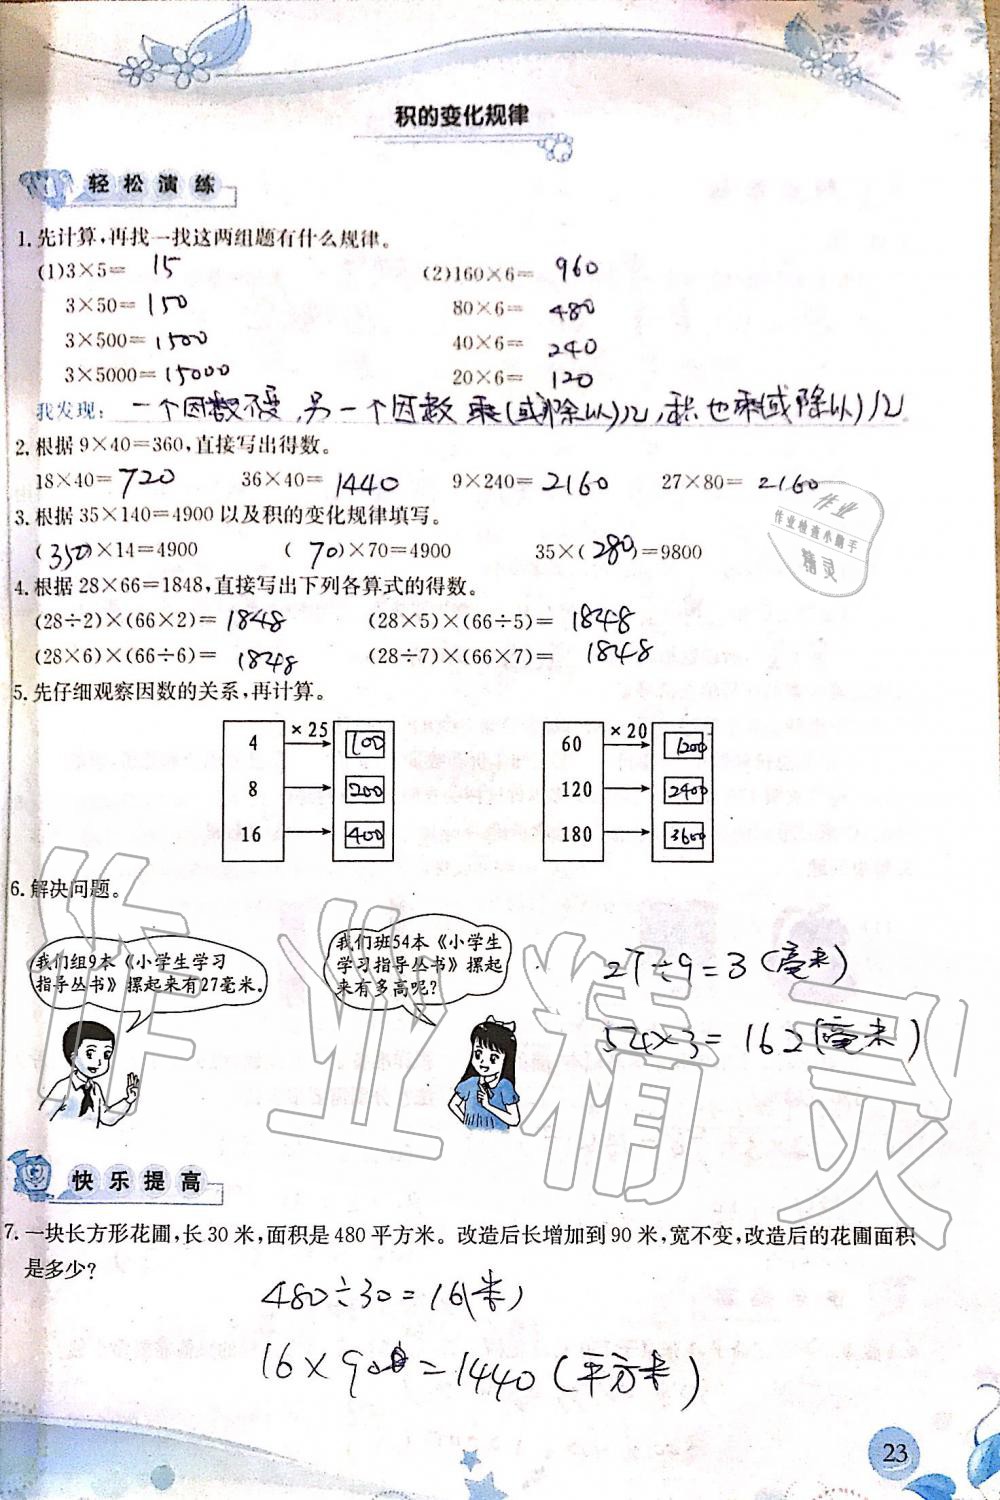 积的变化规律
轻松演练
1.先计算,再找一找这两组题有什么规律。
(1)3×5= 15 (2)160×6= 960
3×50= 150 80×6= 480
3×500= 1500 40×6= 240
3×5000= 15000 20×6= 120
我发现: 一个因数不变,另一个因数乘(或除以)几,积也乘(或除以)几
2.根据9×40=360,直接写出得数。
18×40= 720 36×40= 1440 9×240= 2160 27×80= 2160
3.根据35×140=4900以及积的变化规律填写。
(350)×14=4900 (70)×70=4900 35×(280)=9800
4.根据28×66=1848,直接写出下列各算式的得数。
(28÷2)×(66×2)= 1848 (28×5)×(66÷5)= 1848
(28×6)×(66÷6)= 1848 (28÷7)×(66×7)= 1848
5.先仔细观察因数的关系,再计算。
×25 ×20
4 100 60 1200
8 200 120 2400
16 400 180 3600
6.解决问题。
我们组9本《小学生学习
指导丛书》摞起来有27毫米。
我们班54本《小学生
学习指导丛书》摞起
来有多高呢?
27÷9=3(毫米)
54×3=162(毫米)
快乐提高
7.一块长方形花圃,长30米,面积是480平方米。改造后长增加到90米,宽不变,改造后的花圃面积
是多少?
480÷30=16(米)
16×90=1440(平方米)
23
作业
作业检查小帮手
精灵
作业精灵